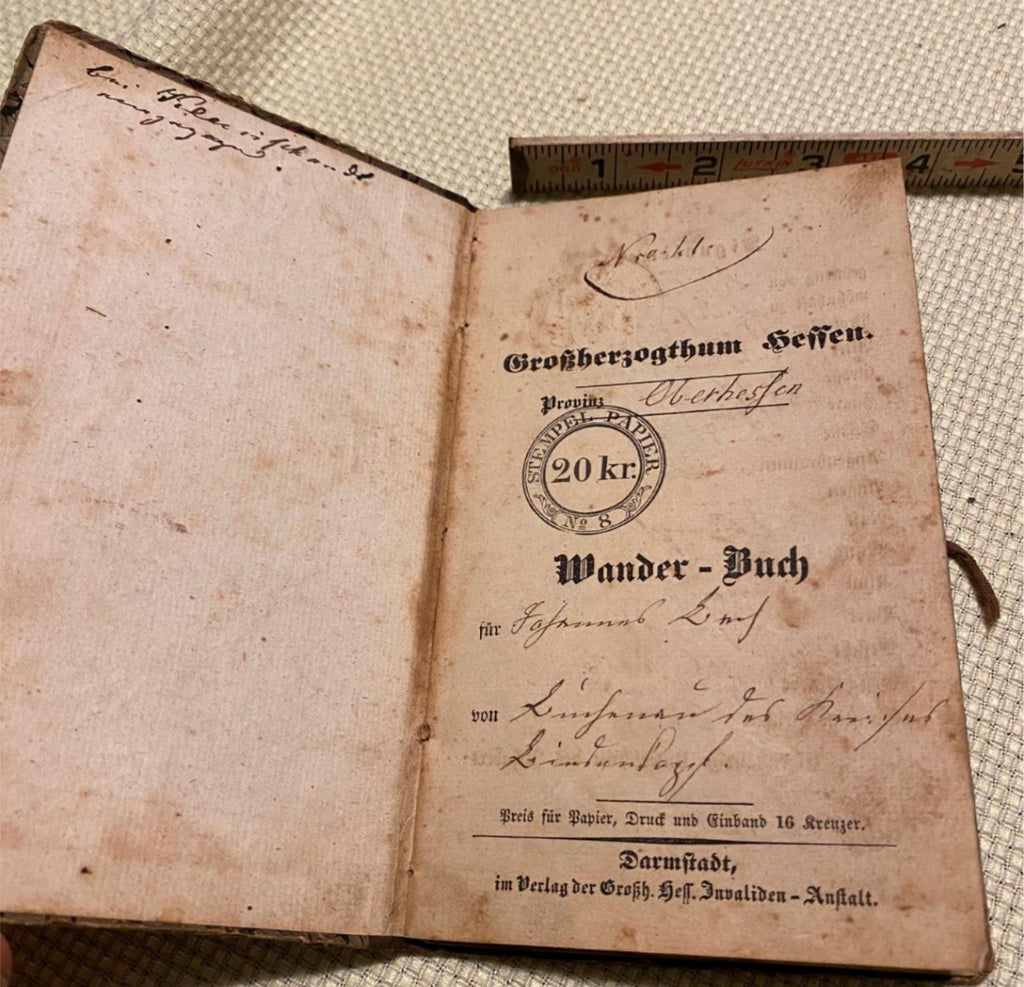 bei
Großherzogthum Hessen.
Provinz Oberhessen
STEMPEL PAPIER
20 kr.
No 8
Wander-Buch
für Johannes
von Buchenau des Kreises
Biedenkopf.
Preis für Papier, Druck und Einband 16 Kreuzer.
Darmstadt,
im Verlag der Großh. Hess. Invaliden-Anstalt.
1 2 3 4 5